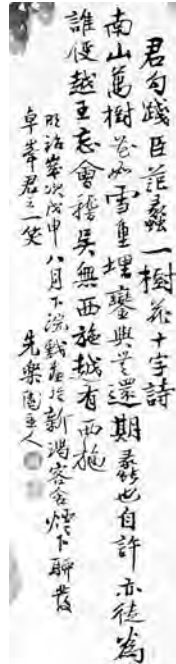 君勾踐臣范蠡一樹花十字詩
南山萬樹花如雪重埋鑾輿無還期蠡也自許亦徒為
誰使越王忘會稽吳無西施越有西施
明治歲次戊申八月下浣戲於新潟客舍燈下聊發
卓峯君之一笑
先樂園主人